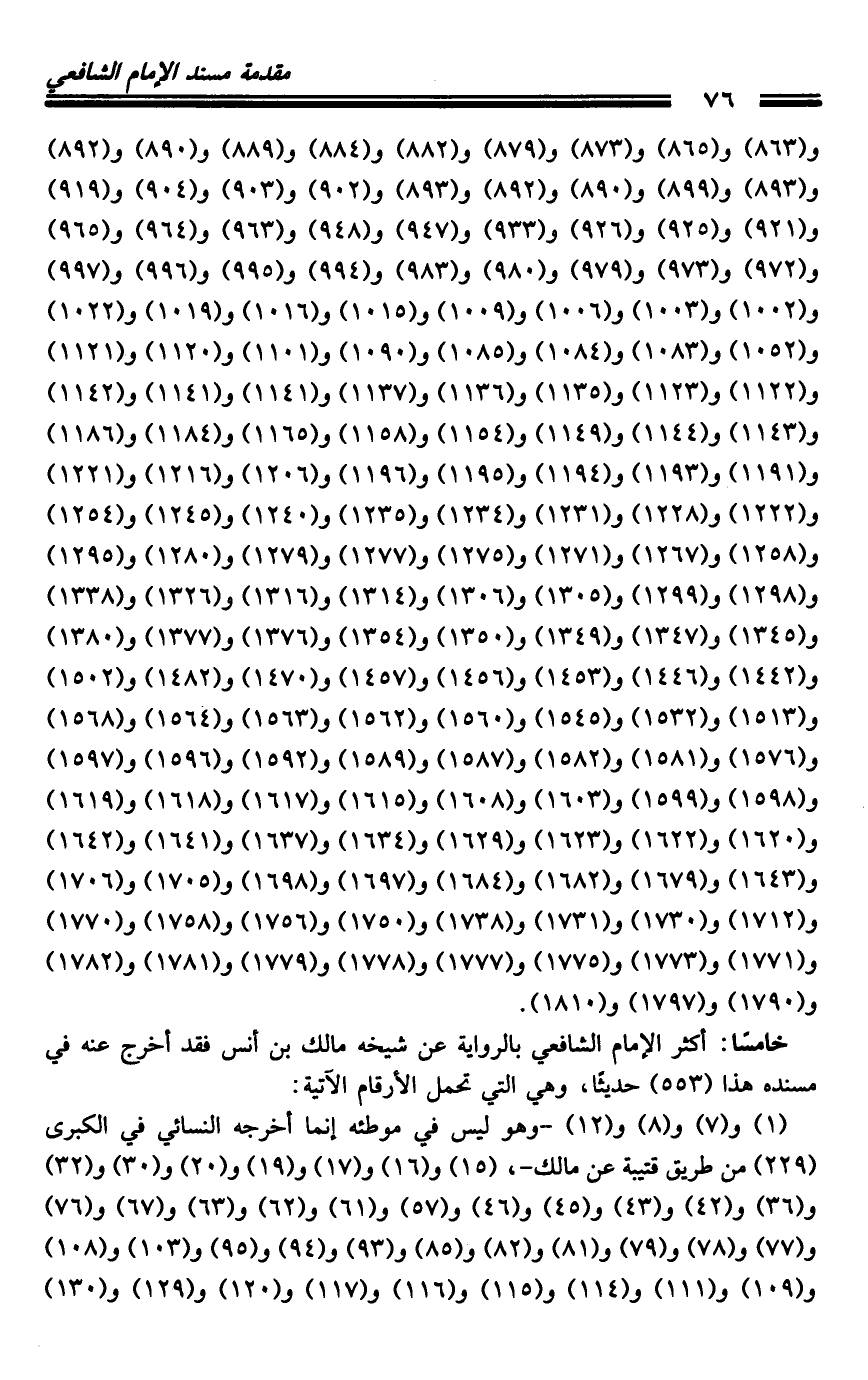 مقدمة مسند الإمام الشافعي
٧٦
و(٨٦٣) و(٨٦٥) و(٨٧٣) و(٨٧٩) و(٨٨٢) و(٨٨٤) و(٨٨٩) و(٨٩٠) و(٨٩٢)
و(٨٩٣) و(٨٩٩) و(٨٩٠) و(٨٩٢) و(٨٩٣) و(٩٠٢) و(٩٠٣) و(٩٠٤) و(٩١٩)
و(٩٢١) و(٩٢٥) و(٩٢٦) و(٩٣٣) و(٩٤٧) و(٩٤٨) و(٩٦٣) و(٩٦٤) و(٩٦٥)
و(٩٧٢) و(٩٧٣) و(٩٧٩) و(٩٨٠) و(٩٨٣) و(٩٩٤) و(٩٩٥) و(٩٩٦) و(٩٩٧)
و(١٠٠٢) و(١٠٠٣) و(١٠٠٦) و(١٠٠٩) و(١٠١٥) و(١٠١٦) و(١٠١٩) و(١٠٢٢)
و(١٠٥٢) و(١٠٨٣) و(١٠٨٤) و(١٠٨٥) و(١٠٩٠) و(١١٠١) و(١١٢٠) و(١١٢١)
و(١١٢٢) و(١١٢٣) و(١١٣٥) و(١١٣٦) و(١١٣٧) و(١١٤١) و(١١٤١) و(١١٤٢)
و(١١٤٣) و(١١٤٤) و(١١٤٩) و(١١٥٤) و(١١٥٨) و(١١٦٥) و(١١٨٤) و(١١٨٦)
و(١١٩١) و(١١٩٣) و(١١٩٤) و(١١٩٥) و(١١٩٦) و(١٢٠٦) و(١٢١٦) و(١٢٢١)
و(١٢٢٢) و(١٢٢٨) و(١٢٣١) و(١٢٣٤) و(١٢٣٥) و(١٢٤٠) و(١٢٤٥) و(١٢٥٤)
و(١٢٥٨) و(١٢٦٧) و(١٢٧١) و(١٢٧٥) و(١٢٧٧) و(١٢٧٩) و(١٢٨٠) و(١٢٩٥)
و(١٢٩٨) و(١٢٩٩) و(١٣٠٥) و(١٣٠٦) و(١٣١٤) و(١٣١٦) و(١٣٢٦) و(١٣٣٨)
و(١٣٤٥) و(١٣٤٧) و(١٣٤٩) و(١٣٥٠) و(١٣٥٤) و(١٣٧٦) و(١٣٧٧) و(١٣٨٠)
و(١٤٤٢) و(١٤٤٦) و(١٤٥٣) و(١٤٥٦) و(١٤٥٧) و(١٤٧٠) و(١٤٨٢) و(١٥٠٢)
و(١٥١٣) و(١٥٣٢) و(١٥٤٥) و(١٥٦٠) و(١٥٦٢) و(١٥٦٣) و(١٥٦٤) و(١٥٦٨)
و(١٥٧٦) و(١٥٨١) و(١٥٨٢) و(١٥٨٧) و(١٥٨٩) و(١٥٩٢) و(١٥٩٦) و(١٥٩٧)
و(١٥٩٨) و(١٥٩٩) و(١٦٠٣) و(١٦٠٨) و(١٦١٥) و(١٦١٧) و(١٦١٨) و(١٦١٩)
و(١٦٢٠) و(١٦٢٢) و(١٦٢٣) و(١٦٢٩) و(١٦٣٤) و(١٦٣٧) و(١٦٤١) و(١٦٤٢)
و(١٦٤٣) و(١٦٧٩) و(١٦٨٢) و(١٦٨٤) و(١٦٩٧) و(١٦٩٨) و(١٧٠٥) و(١٧٠٦)
و(١٧١٢) و(١٧٣٠) و(١٧٣١) و(١٧٣٨) و(١٧٥٠) و(١٧٥٦) و(١٧٥٨) و(١٧٧٠)
و(١٧٧١) و(١٧٧٣) و(١٧٧٥) و(١٧٧٧) و(١٧٧٨) و(١٧٧٩) و(١٧٨١) و(١٧٨٢)
و(١٧٩٠) و(١٧٩٧) و(١٨١٠).
خامسًا: أكثر الإمام الشافعي بالرواية عن شيخه مالك بن أنس فقد أخرج عنه في
مسنده هذا (٥٥٣) حديثًا، وهي التي تحمل الأرقام الآتية:
(١) و(٧) و(٨) و(١٢) -وهو ليس في موطئه إنما أخرجه النسائي في الكبرى
(٢٢٩) من طريق قتيبة عن مالك-، (١٥) و(١٦) و(١٧) و(١٩) و(٢٠) و(٣٠) و(٣٢)
و(٣٦) و(٤٢) و(٤٣) و(٤٥) و(٤٦) و(٥٧) و(٦١) و(٦٢) و(٦٣) و(٦٧) و(٧٦)
و(٧٧) و(٧٨) و(٧٩) و(٨١) و(٨٢) و(٨٥) و(٩٣) و(٩٤) و(٩٥) و(١٠٣) و(١٠٨)
و(١٠٩) و(١١١) و(١١٤) و(١١٥) و(١١٦) و(١١٧) و(١٢٠) و(١٢٩) و(١٣٠)